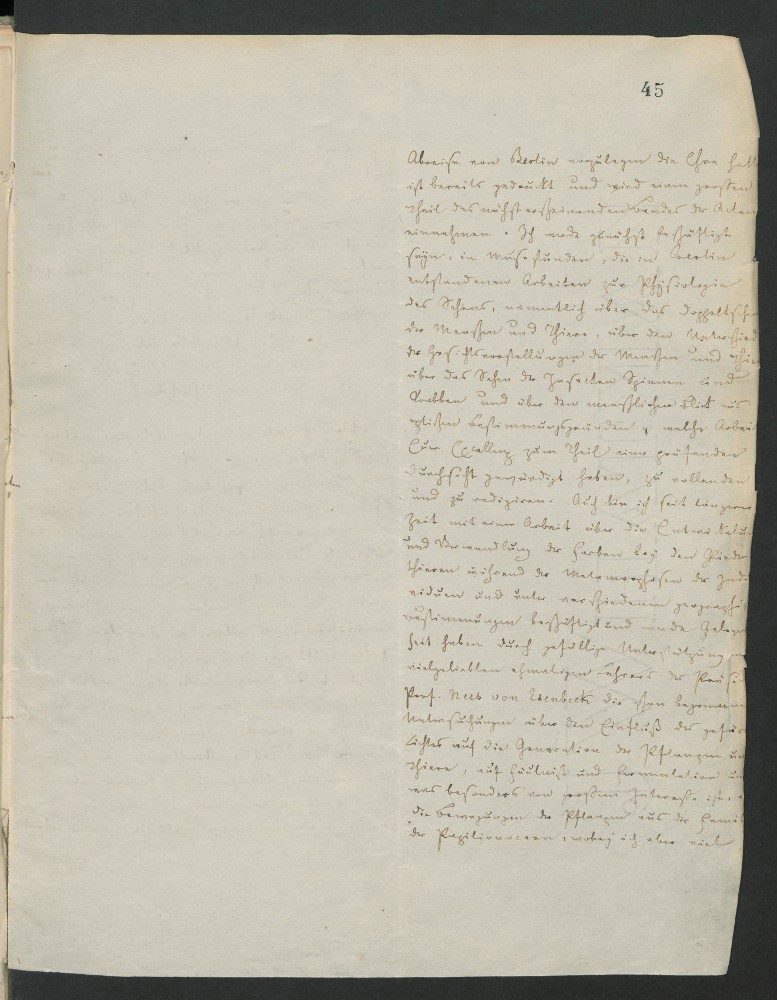 45
Abreise von Berlin vorzulegen die Ehre hatte
ist bereits gedruckt und wird einen großen
Theil des nächst erscheinenden Bandes der Acten
einnehmen. Ich werde zunächst beschäftigt
seyn, in Musestunden, die in Berlin
entstandenen Arbeiten zur Physiologie
des Sehens, namentlich über das Doppeltsehen
der Menschen und Thiere, über den Unterschied
der Gesichtsvorstellungen der Menschen und Thiere
über das Sehen der Insecten Spinnen und
Krabben und über den menschlichen Blick aus
optischen Bestimmungsgründen, welche Arbeiten
Eure Excellenz zum Theil einer prüfenden
Durchsicht gewürdigt haben, zu vollenden
und zu redigiren. Auch bin ich seit längerer
Zeit mit einer Arbeit über die Entwickelung
und Verwandlung der Farben bey den Glieder
thieren während der Metamorphosen der Indi
viduen und unter verschiedenen geographi
Bestimmungen beschäftigt und werde Gelegen
heit haben durch gefällige Unterstützung
vielgeliebten ehemaligen Lehrers des
Prof. Nees von Esenbeck die schon begonnenen
Untersuchungen über den Einfluß des gefärbten
Lichtes auf die Generation der Pflanzen und
Thiere, auf Fäulniß und Fermentation und
was besonders von großem Interesse ist
die Bewegungen der Pflanzen aus der Famil
der Papilionaceen, wobey ich aber viel